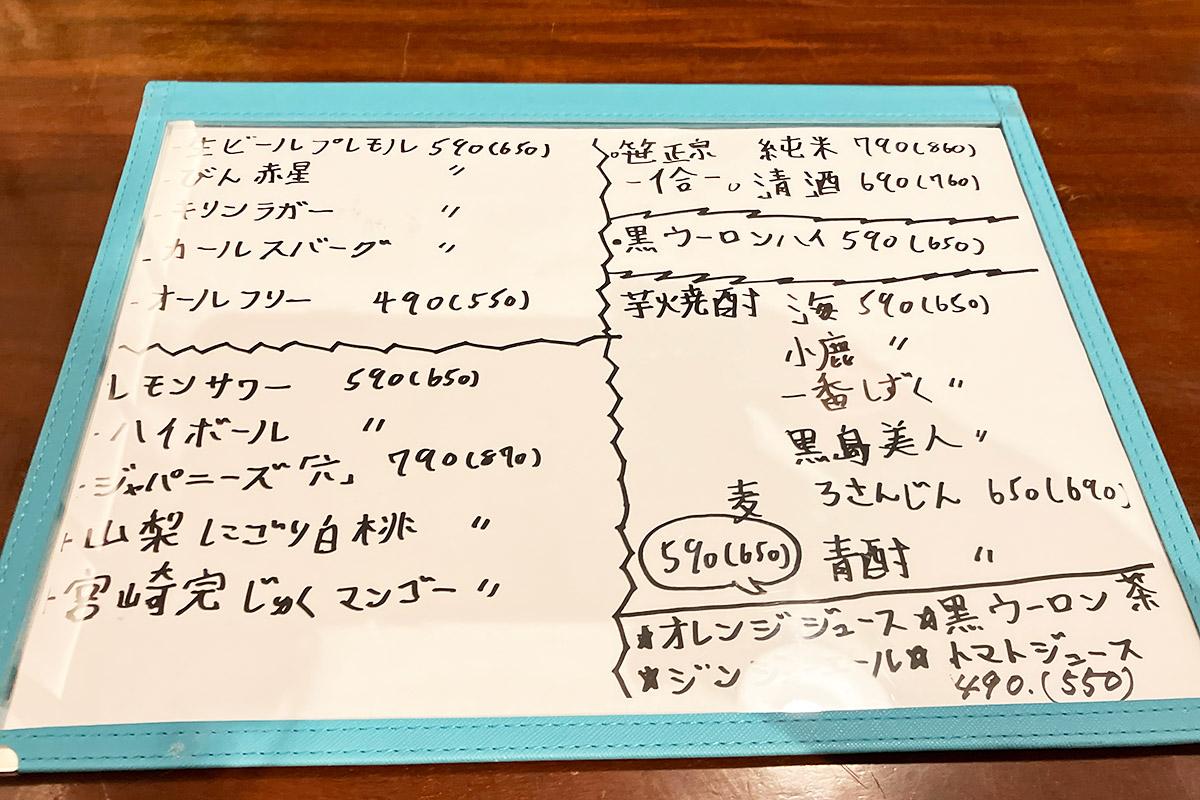 ・生ビールプレモル 590(650)
・びん赤星 〃
・キリンラガー 〃
・カールスバーグ 〃
・オールフリー 490(550)
レモンサワー 590(650)
・ハイボール 〃
・ジャパニーズ「六」 790(870)
・山梨にごり白桃 〃
・宮崎完じゅくマンゴー 〃
・笹正宗 純米 790(860)
一合 清酒 690(760)
・黒ウーロンハイ 590(650)
芋焼酎 海 590(650)
小鹿 〃
一番しずく 〃
黒島美人 〃
麦 ろさんじん 650(690)
590(650) 青酎 〃
★オレンジジュース★黒ウーロン茶
★ジン ール★トマトジュース
490.(550)